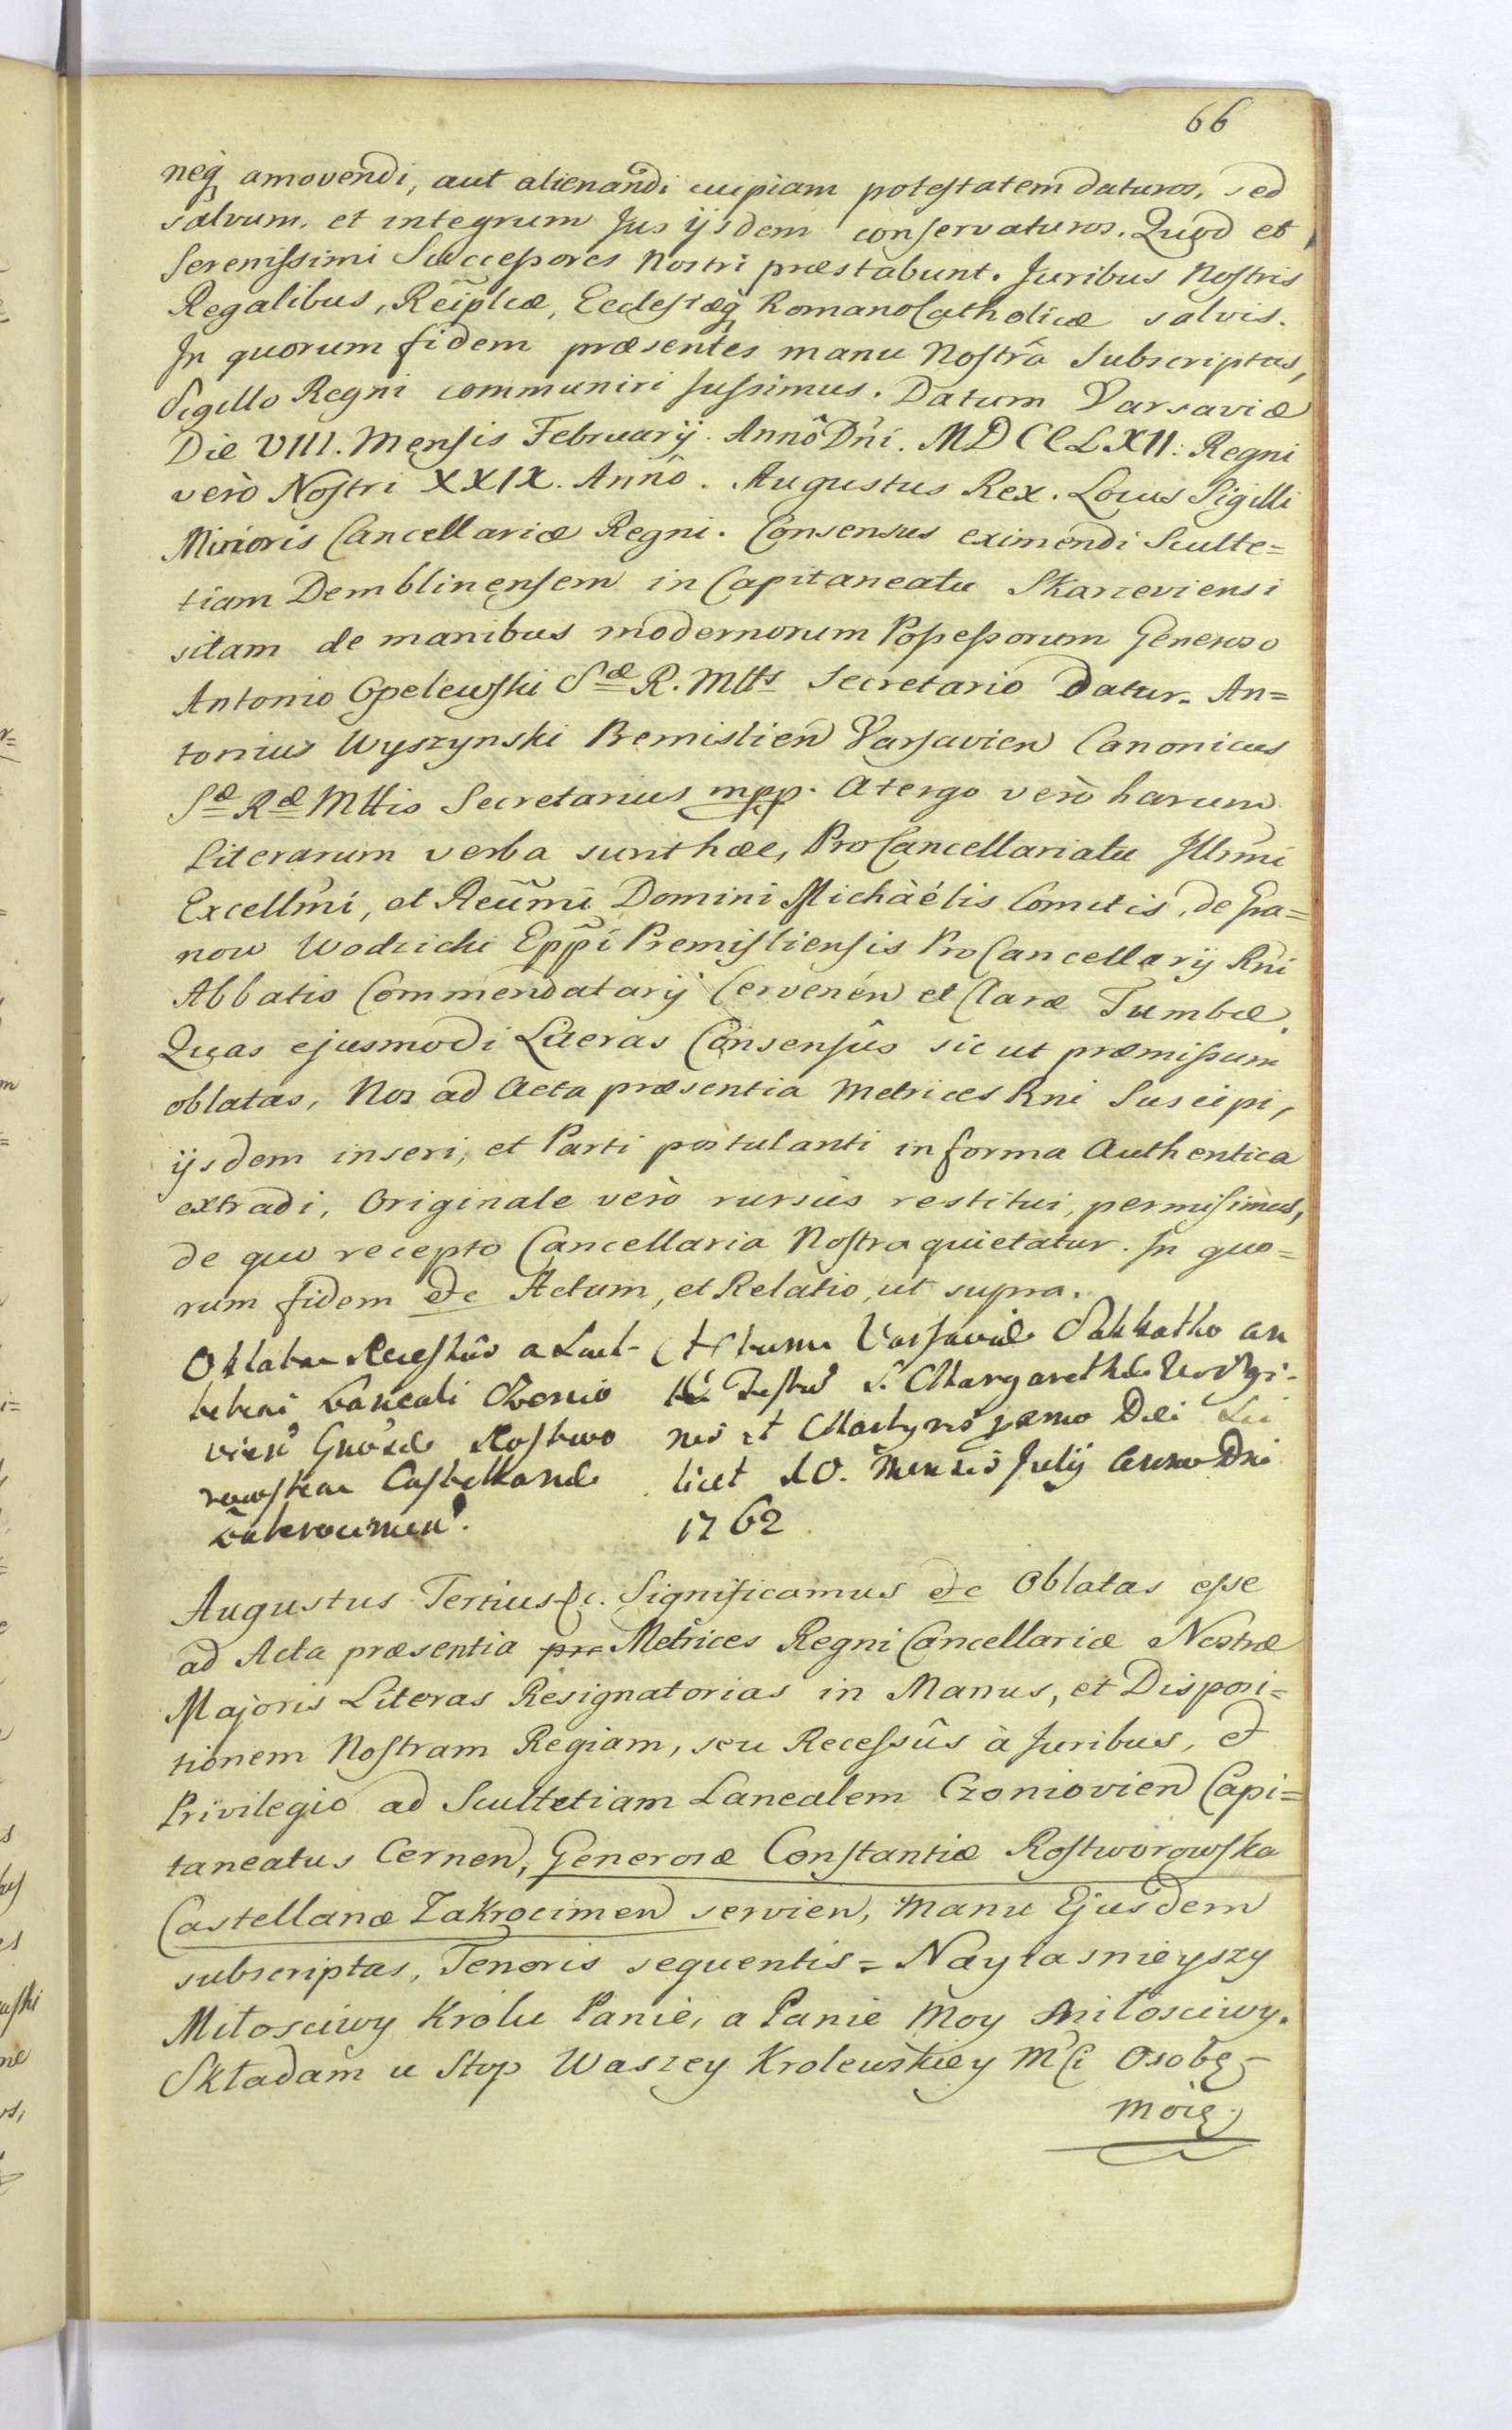 66
neq amovendi, aut alienandi cuipiam potestatem daturos, sed
salvum, et integrum Jus ijsdem conservaturos. Quod et
Serenissimi Successores Nostri præstabunt. Juribus Nostris
Regalibus, Reiplicæ, Ecclesiæq Romano Catholicæ salvis.
In quorum fidem præsentes manu Nostrâ Subscriptas,
Sigillo Regni communiri Jussimus. Datum Varsaviæ
Die VIII. Mensis February. Annô Dni. MDCCLXII: Regni
verò Nostri XXIX. Annô. Augustus Rex. Locus Sigilli
Minoris Cancellariæ Regni. Consensus eximendi Sculte=
tiam Demblinensem in Capitaneatu Skarzeviensi
sitam de manibus modernorum Possessorum Generoso
Antonio Opelewski Sæ R. Mtts Secretario Datur. An=
tonius Wyszynski Premislien Varsavien Canonicus
Sæ Ræ Mttis Secretarius mpp. A tergo verò harum
Literarum verba sunt hæc, Pro Cancellariatu Illrmi
Excellmi, et Reumi Domini Michàélis Comitis, de Gra=
now Wodzicki Eppi Premisliensis Pro Cancellarij Rni
Abbatis Commendatarij Cervenén et Claræ Tumbæ.
Quas ejusmodi Literas Consensûs sic ut præmissum
oblatas, Nos ad Acta præsentia Metrices Rni Suscipi,
ijsdem inseri, et Parti postulanti in forma Authentica
extradi, Originale verò rursùs restitui, permisimus,
de quo recepto Cancellaria Nostra quietatur. In quo=
rum fidem etc Actum, et Relatio, ut supra.
Oblata Recessûs a Scul- Actum Varsaviæ Sabbatho an
tetiæ Laneali Czonio te Festum S. Margarethæ Virgi-
vien Gnosæ Rostwo nis et Martyris præmo Die Sci
rowska Castellanæ licet 10. Mensis July Anno Dni
Zakrocimen. 1762
Augustus Tertius &c. Significamus etc Oblatas esse
ad Acta præsentia pre Metrices Regni Cancellariæ Nostræ
Majoris Literas Resignatorias in Manus, et Disposi=
tionem Nostram Regiam, seu Recessûs à Juribus, et
Privilegio ad Scultetiam Lanealem Czoniovien Capi=
taneatus Cernen, Generosæ Constantiæ Rostworowska
Castellanæ Zakrocimen servien, manu Ejusdem
subscriptas, Tenoris sequentis = Nayłasnieyszy
Miłosciwy Królu Panie, a Panie Moy Miłosciwy.
Składam u Stop Waszey Krolewskiey Mci Osobę
moię